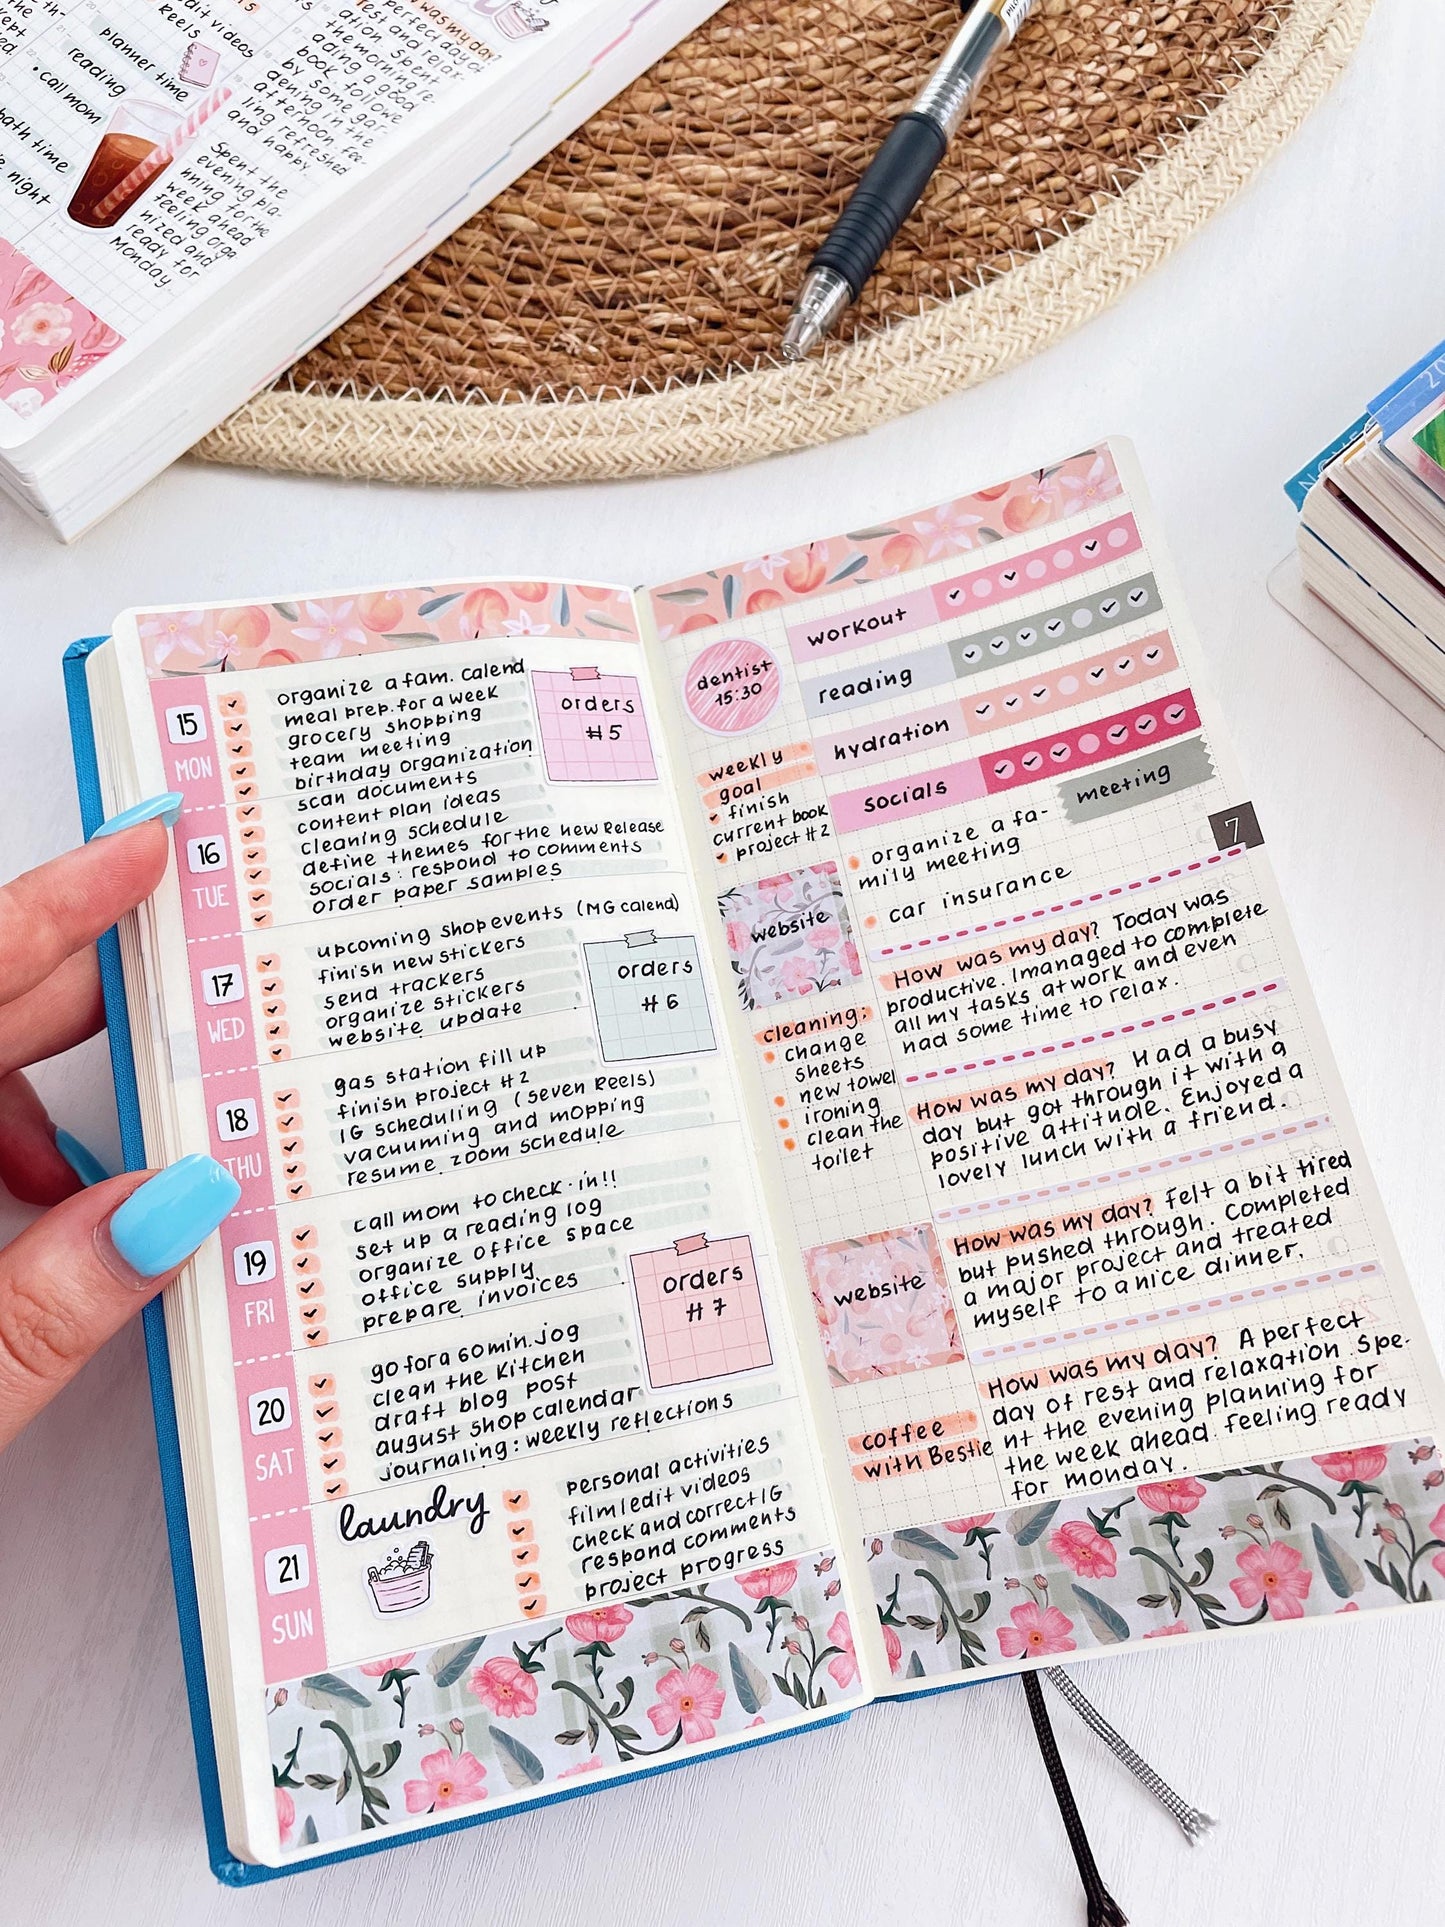 edit videos
Reels
planner time
reading
• call mom
bath time
night
was my day?
perfect day of
rest and relax-
ation. Spent
the morning re-
ading a good
book followe
by some gar-
dening in the
afternoon. fee-
ling refreshed
and happy.
Spent the
evening pla-
nning for the
week ahead
feeling orga
nized and
ready for
Monday.
15
MON
organize a fam. Calend
meal prep. for a week
grocery shopping
team meeting
birthday organization
orders
#5
16
TUE
scan documents
content plan ideas
cleaning schedule
define themes for the new Release
socials: respond to comments
order paper samples
17
WED
upcoming shop events (MG calend)
finish new stickers
send trackers
organize stickers
website update
orders
#6
18
THU
gas station fill up
finish project #2
IG scheduling (seven Reels)
vacuuming and mopping
resume zoom schedule
19
FRI
call mom to check-in!!
set up a reading log
organize office space
office supply
prepare invoices
orders
#7
20
SAT
go for a 60 min. jog
clean the kitchen
draft blog post
august shop calendar
journaling: weekly reflections
21
SUN
laundry
personal activities
film/edit videos
check and correct IG
respond comments
project progress
dentist
15:30
weekly
goal
finish
current book
project #2
website
cleaning:
change
sheets
new towel
ironing
clean the
toilet
website
coffee
with Bestie
workout
reading
hydration
socials
meeting
7
organize a fa-
mily meeting
car insurance
How was my day? Today was
productive. I managed to complete
all my tasks at work and even
had some time to relax.
How was my day? Had a busy
day but got through it with a
positive attitude. Enjoyed a
lovely lunch with a friend.
How was my day? Felt a bit tired
but pushed through. Completed
a major project and treated
myself to a nice dinner.
How was my day? A perfect
day of rest and relaxation. Spe-
nt the evening planning for
the week ahead. feeling ready
for monday.